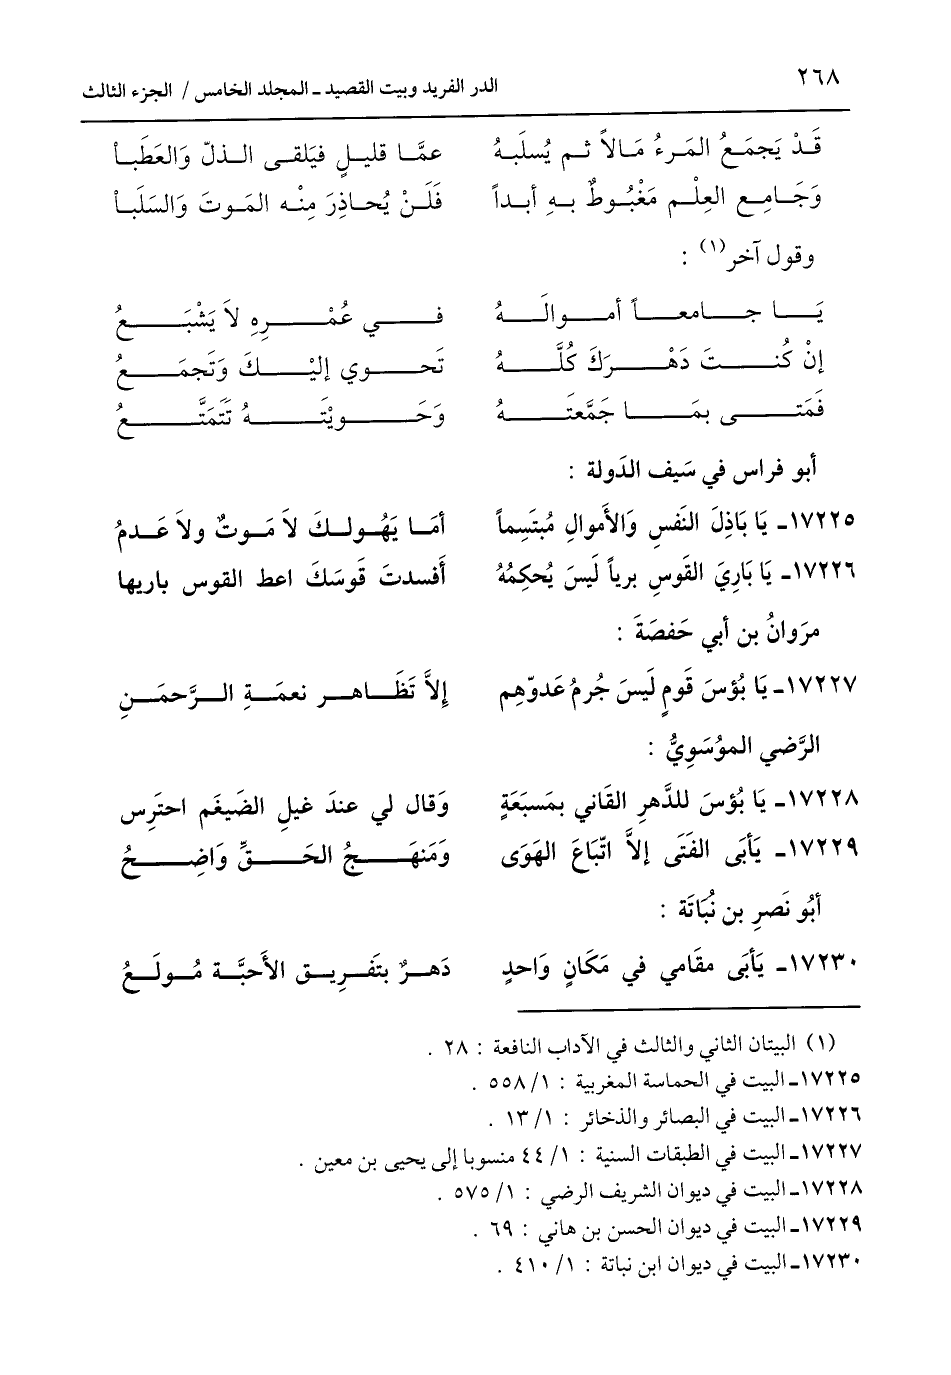 ٢٦٨ الدر الفريد وبيت القصيد ـ المجلد الخامس / الجزء الثالث
قَدْ يَجمَعُ المَرءُ مَالاً ثم يُسلَبهُ عمَّا قليلٍ فيَلقى الذلّ وَالعَطَبا
وَجَامِع العِلْمِ مَغْبُوطٌ بهِ أبداً فَلَنْ يُحاذِرَ مِنْه الموتَ وَالسَلَبا
وقول آخر(١) :
يَا جامعاً أموالَهُ في عُمْرِهِ لاَ يَشْبَعُ
إنْ كُنتَ دَهْرَكَ كُلَّهُ تَحوي إليْكَ وَتَجمَعُ
فَمَتى بمَا جَمَّعتَهُ وَحَويْتَهُ تَتَمَتَّعُ
أبو فراس في سَيف الدَولة :
١٧٢٢٥ـ يَا بَاذِلَ النَفسِ وَالأموالِ مُبتَسِماً أمَا يَهُولكَ لاَ مَوتٌ ولاَ عَدمُ
١٧٢٢٦ـ يَا بَارِيَ القَوسِ برياً لَيسَ يُحكِمُهُ أَفسدتَ قَوسَكَ اعط القوس باريها
مرَوانُ بن أبي حَفصَةَ :
١٧٢٢٧ـ يَا بُؤسَ قَومٍ لَيسَ جُرمُ عَدوّهِم إلاَّ تَظَاهر نعمَةِ الرَّحمَنِ
الرَّضي الموُسَوِيُّ :
١٧٢٢٨ـ يَا بُؤسَ للدَّهرِ القَاني بمَسبَعَةٍ وَقال لي عندَ غيلِ الضَيغَم احترَس
١٧٢٢٩ـ يَأبَى الفَتَى إلاَّ اتّبَاعَ الهَوَى وَمَنهَجُ الحَقِّ وَاضِحُ
أبُو نَصرِ بن نُبَاتَة :
١٧٢٣٠ـ يَأبَى مقَامي في مَكَانٍ وَاحدٍ دَهرٌ بتَفرِيق الأَحبَّة مُولَعُ
(١) البيتان الثاني والثالث في الآداب النافعة : ٢٨ .
١٧٢٢٥ـ البيت في الحماسة المغربية : ١/ ٥٥٨ .
١٧٢٢٦ـ البيت في البصائر والذخائر : ١/ ١٣ .
١٧٢٢٧ـ البيت في الطبقات السنية : ١/ ٤٤ منسوبا إلى يحيى بن معين .
١٧٢٢٨ـ البيت في ديوان الشريف الرضي : ١/ ٥٧٥ .
١٧٢٢٩ـ البيت في ديوان الحسن بن هاني : ٦٩ .
١٧٢٣٠ـ البيت في ديوان ابن نباتة : ١/ ٤١٠ .